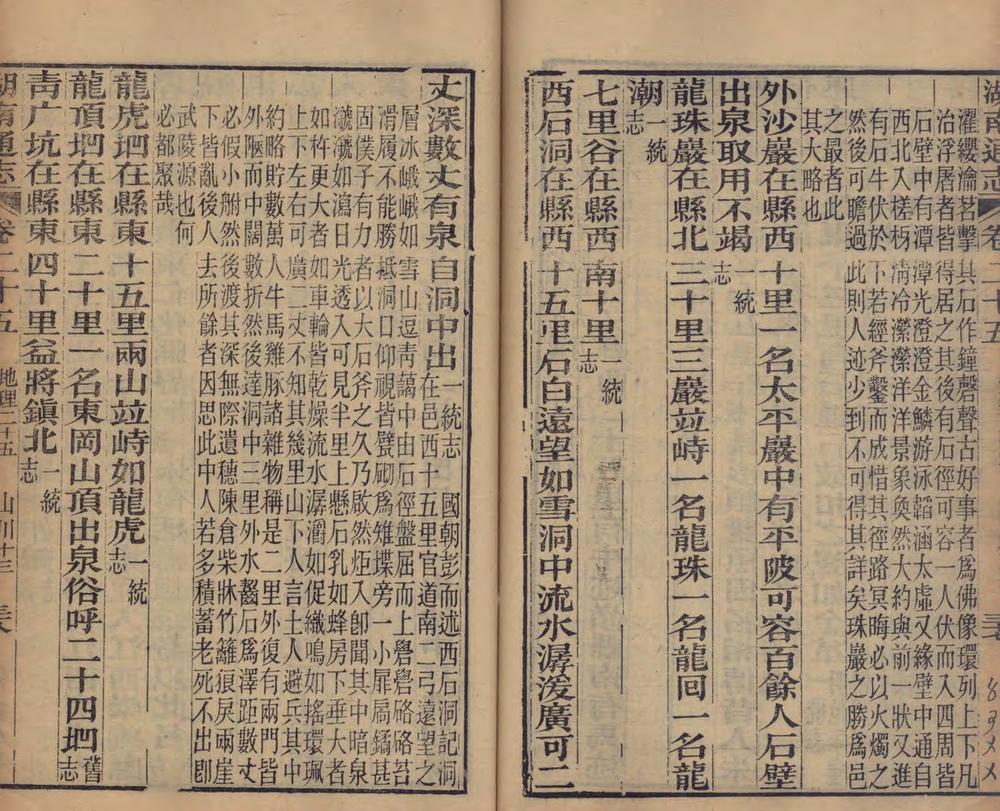 湖南通志 卷二十五
濯纓瀹茗擊其石作鐘磬聲古好事者爲佛像環列上下凡
治浮屠者皆得居之其後有石徑可容一人伏而入四周皆
石壁中有潭潭光澄澄金鱗游泳韜涵太虛又緣壁中通自
西北入槎枒清冷瀠瀠洋洋景象奐然大約與前一狀又進
有石牛伏於下若經斧鑿而成惜其徑路冥晦必以火燭之
然後可瞻過此則人迹少到不可得其詳矣珠巖之勝爲邑
之最者此
其大略也
外沙巖在縣西十里一名太平巖中有平陂可容百餘人石壁
出泉取用不竭一統志
龍珠巖在縣北三十里三巖竝峙一名龍珠一名龍回一名龍
潮一統志
七里谷在縣西南十里一統志
西石洞在縣西十五里石白遠望如雪洞中流水潺湲廣可二
丈深數丈有泉自洞中出一統志 國朝彭而述西石洞記洞
在邑西十五里官道南二弓遠望之
層冰峨峨如雪山逗靑靄中由石徑盤屈而上礐礐硌硌苔
滑履不能勝袛洞口仰視皆甓砌爲雉堞旁一小扉扃鐍甚
固僕子有力者以大石斧之久乃啟然炬入卽聞其中暗泉
㶁㶁如瀉日光透入可見半里上懸石乳如蜂房下垂大者
如杵更大者如車輪皆乾燥流水潺㶕如促織鳴如搖環珮
上下左右可廣二丈不知其幾里山下人言土人避兵其中
約略貯數萬人牛馬雞豚諸雜物稱是二里外復有兩門皆
外陿而中闊數折然後達洞中三里外水齧石爲澤距數丈
必假小舠然後渡其深無際遺穗陳倉柴牀竹籬很戾兩崖
下皆亂後人去所餘者因思此中人若多積蓄老死不出卽
武陵源也何
必都聚哉
龍虎𡉏在縣東十五里兩山竝峙如龍虎一統志
龍頂𡉏在縣東二十里一名東岡山頂出泉俗呼二十四𡉏舊志
靑广坑在縣東四十里益將鎮北一統志
湖南通志 卷二十五 地理二十五 山川十三